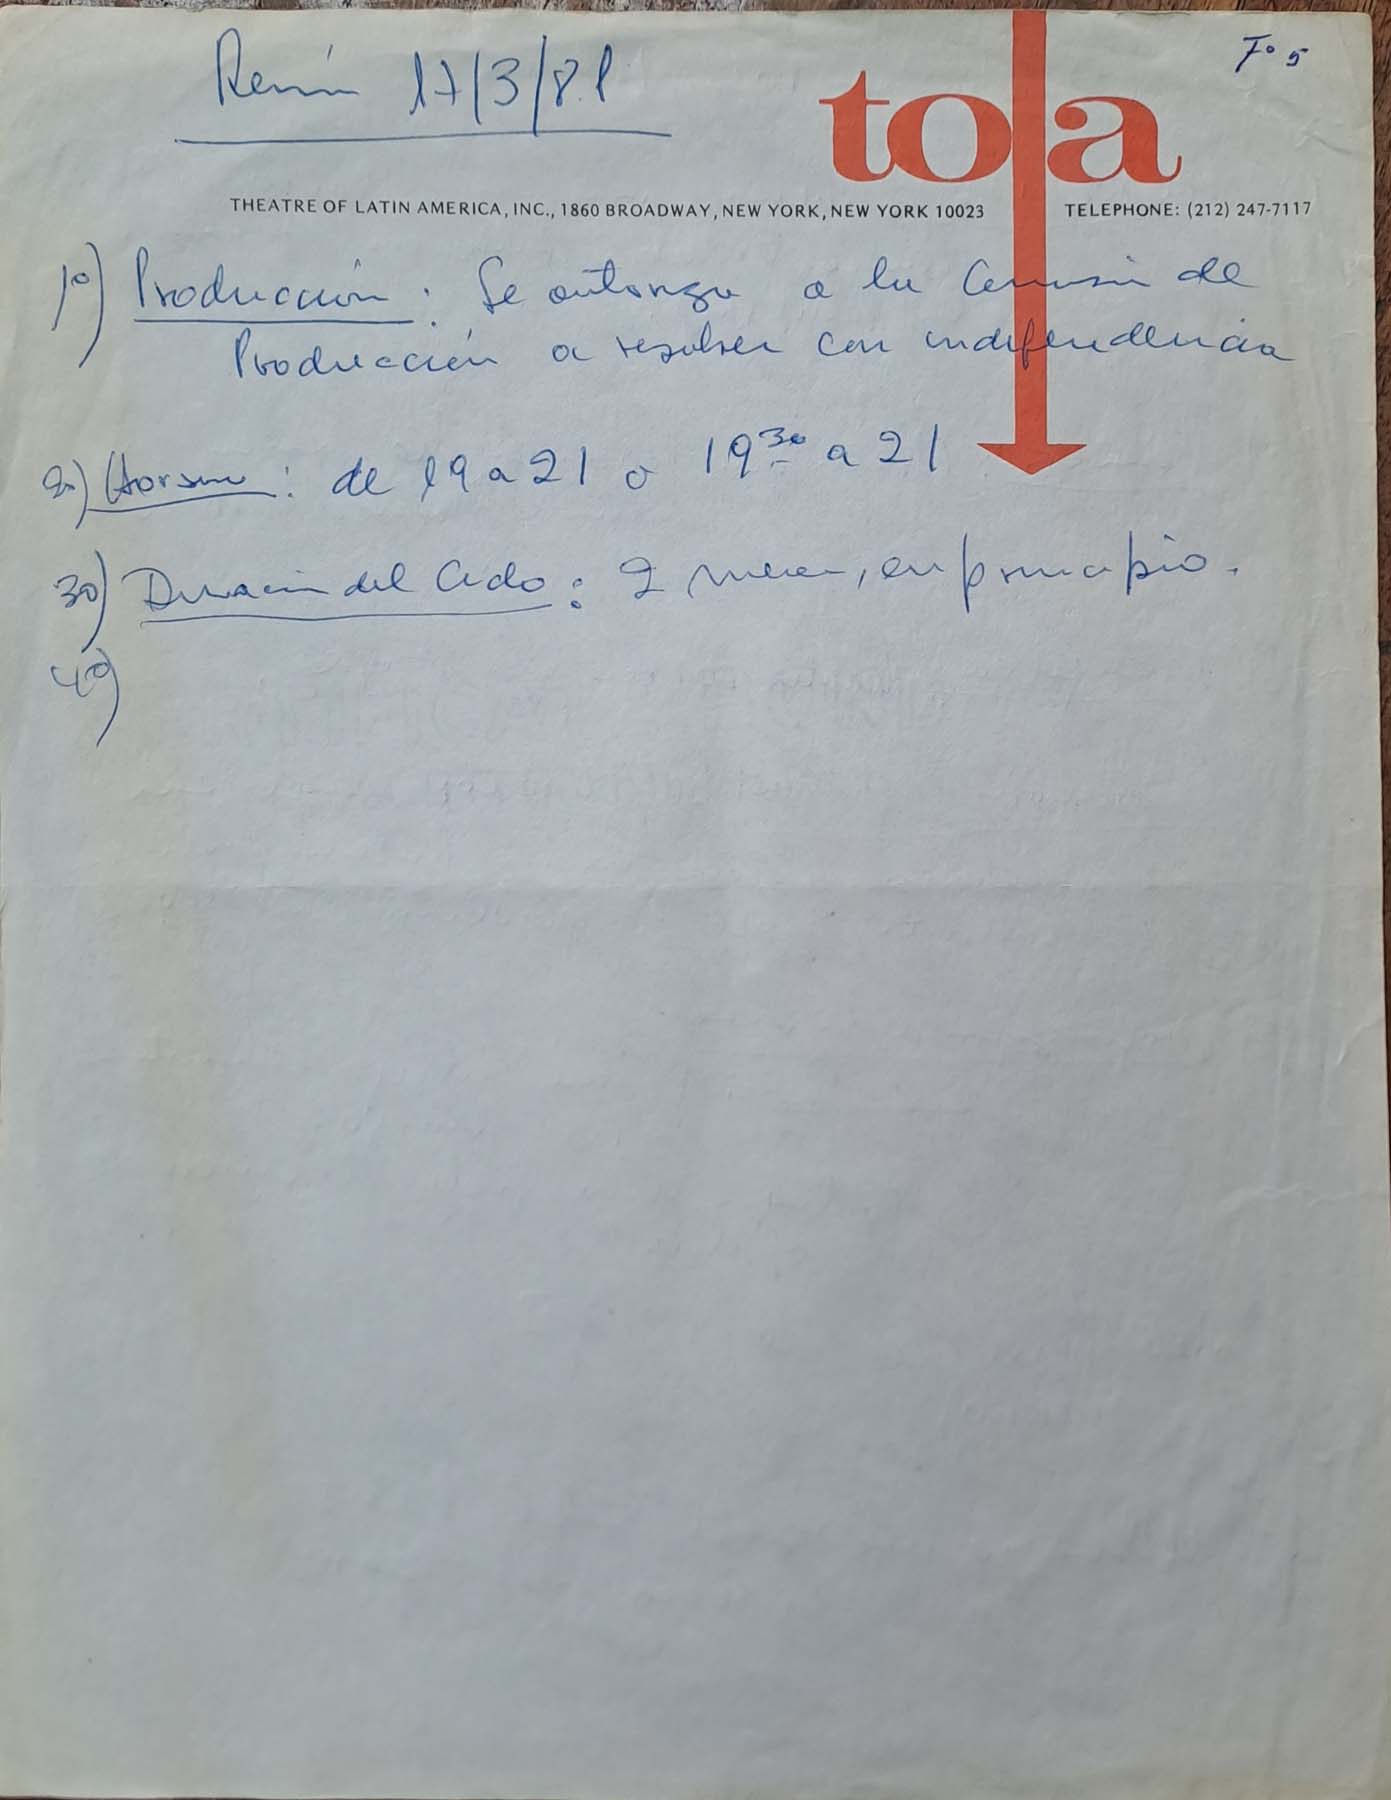 Fº 5
Reunión 17/3/81
tola
THEATRE OF LATIN AMERICA, INC., 1860 BROADWAY, NEW YORK, NEW YORK 10023 TELEPHONE: (212) 247-7117
1º) Producción: Se autoriza a la Comisión de
Producción a resolver con independencia
2º) Horario: de 19 a 21 o 19 30 a 21
3º) Duración del Ciclo: 2 meses, en principio.
4º)